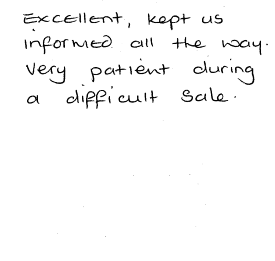 Excellent, kept us
informed all the way.
Very patient during
a difficult sale.